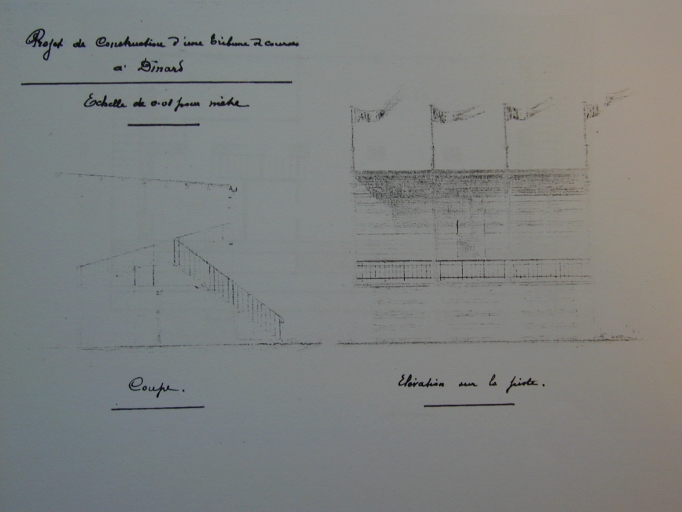 Projet de Construction d'une tribune de courses
à Dinard
Echelle de 0.01 pour mètre
Coupe.
Elévation sur la piste.